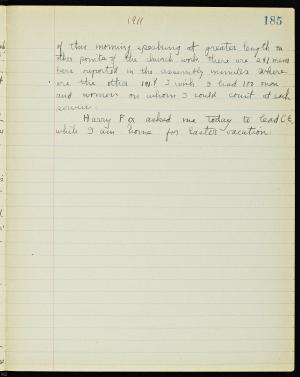 1911
185
of this morning speaking at greater length on
other points of the church work. There are 291 mem
bers reported in the assembly minutes where
are the other 191? I wish I had 100 men
and women on whom I could count at each
service.
Harry Fox asked me today to lead C.E.
while I am home for Easter vacation.